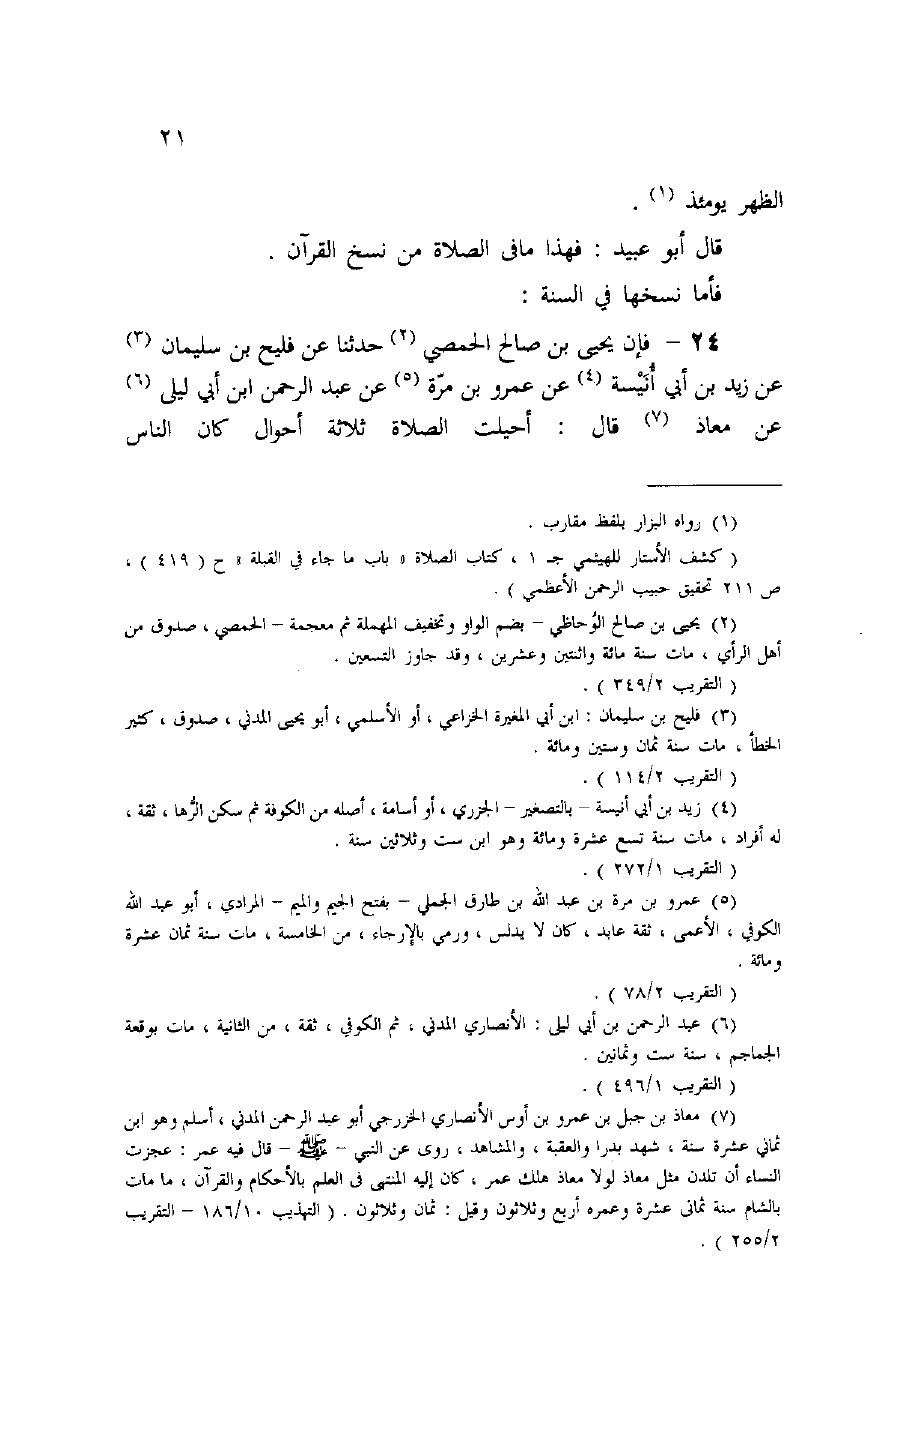 ٢١
الظهر يومئذ (١) .
قال أبو عبيد : فهذا مافى الصلاة من نسخ القرآن .
فأما نسخها في السنة :
٢٤ – فإن يحيى بن صالح الحمصي (٢) حدثنا عن فليح بن سليمان (٣)
عن زيد بن أبي أُنَيْسة (٤) عن عمرو بن مرّة (٥) عن عبد الرحمن ابن أبي ليلى (٦)
عن معاذ (٧) قال : أحيلت الصلاة ثلاثة أحوال كان الناس
(١) رواه البزار بلفظ مقارب .
( كشف الأستار للهيثمي جـ ١ ، كتاب الصلاة « باب ما جاء في القبلة » ح ( ٤١٩ ) ،
ص ٢١١ تحقيق حبيب الرحمن الأعظمي ) .
(٢) يحيى بن صالح الوُحاظي – بضم الواو وتخفيف المهملة ثم معجمة – الحمصي ، صدوق من
أهل الرأي ، مات سنة مائة واثنتين وعشرين ، وقد جاوز التسعين .
( التقريب ٣٤٩/٢ ) .
(٣) فليح بن سليمان : ابن أبي المغيرة الخزاعي ، أو الأسلمي ، أبو يحيى المدني ، صدوق ، كثير
الخطأ ، مات سنة ثمان وستين ومائة .
( التقريب ١١٤/٢ ) .
(٤) زيد بن أبي أنيسة – بالتصغير – الجزري ، أو أسامة ، أصله من الكوفة ثم سكن الرُّها ، ثقة ،
له أفراد ، مات سنة تسع عشرة ومائة وهو ابن ست وثلاثين سنة .
( التقريب ٢٧٢/١ ) .
(٥) عمرو بن مرة بن عبد الله بن طارق الجملي – بفتح الجيم والميم – المرادي ، أبو عبد الله
الكوفي ، الأعمى ، ثقة عابد ، كان لا يدلس ، ورمي بالإرجاء ، من الخامسة ، مات سنة ثمان عشرة
ومائة .
( التقريب ٧٨/٢ ) .
(٦) عبد الرحمن بن أبي ليلى : الأنصاري المدني ، ثم الكوفي ، ثقة ، من الثانية ، مات بوقعة
الجماجم ، سنة ست وثمانين .
( التقريب ٤٩٦/١ ) .
(٧) معاذ بن جبل بن عمرو بن أوس الأنصاري الخزرجي أبو عبد الرحمن المدني ، أسلم وهو ابن
ثماني عشرة سنة ، شهد بدرا والعقبة ، والمشاهد ، روى عن النبي – ﷺ – قال فيه عمر : عجزت
النساء أن تلدن مثل معاذ لولا معاذ هلك عمر ، كان إليه المنتهى فى العلم بالأحكام والقرآن ، ما مات
بالشام سنة ثمانى عشرة وعمره أربع وثلاثون وقيل : ثمان وثلاثون . ( التهذيب ١٨٦/١٠ – التقريب
٢٥٥/٢ ) .